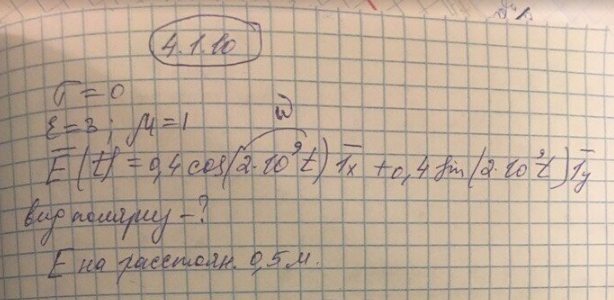 4.1.10
σ = 0
ε = 3; μ = 1
ω
Ē(t) = 0,4 cos(2·10⁹t) 1̄x + 0,4 sin(2·10⁹t) 1̄y
вид поляриз — ?
E на расстоян. 0,5 м.